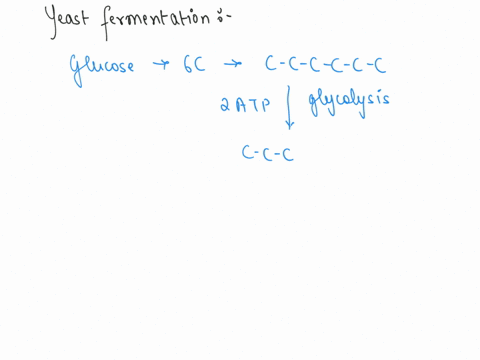 Yeast fermentation :-
Glucose → 6C → C-C-C-C-C-C
2ATP ↓ glycolysis
C-C-C